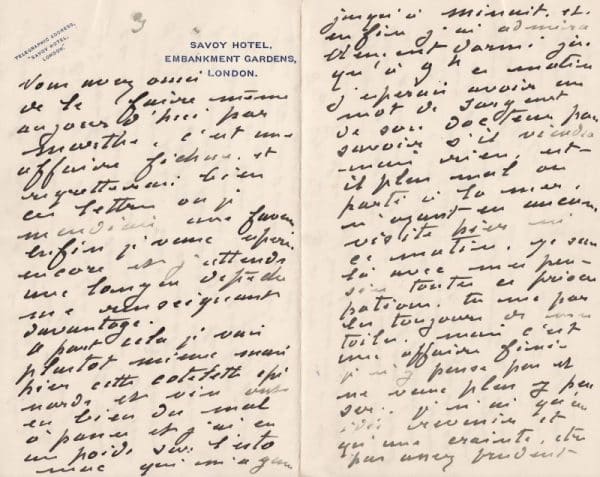 3
TELEGRAPHIC ADDRESS,
"SAVOY HOTEL,
LONDON."
SAVOY HOTEL,
EMBANKMENT GARDENS,
LONDON.
Vous avez aussi
de le faire même
aujour d'hui par
Marthe, c'est une
affaire fichue, et
regretterai bien
ces lettres où j
une faveur
enfin j veux espérer
encore et j'attends
une longue dépêche
me renseignant
davantage.
A part cela j vais
plustot mieux mais
hier cette cotelette épi
nards et vin ont
eu bien du mal
à passer et j'ai eu
un poids sur l'esto
mac qui m'a
jusqu'à minuit, et
enfin j'ai admira
blement dormi jus
qu'à 9 h ce matin
J'esperais avoir un
mot de Sargent
de son docteur pour
savoir s'il viendra
mais rien, est-
il plus mal ou
parti à la mer,
n'ayant eu aucune
visite hier ni
ce matin, je suis
là avec mes pen
sées toute ce
Tu me par
les toujours de
toile, mais c'est
une affaire finie
j n'y pense pas et
ne veux plus y pen
ser, j n'ai qu'une
idée revenir et
qu'une crainte, etre
pas assez prudent